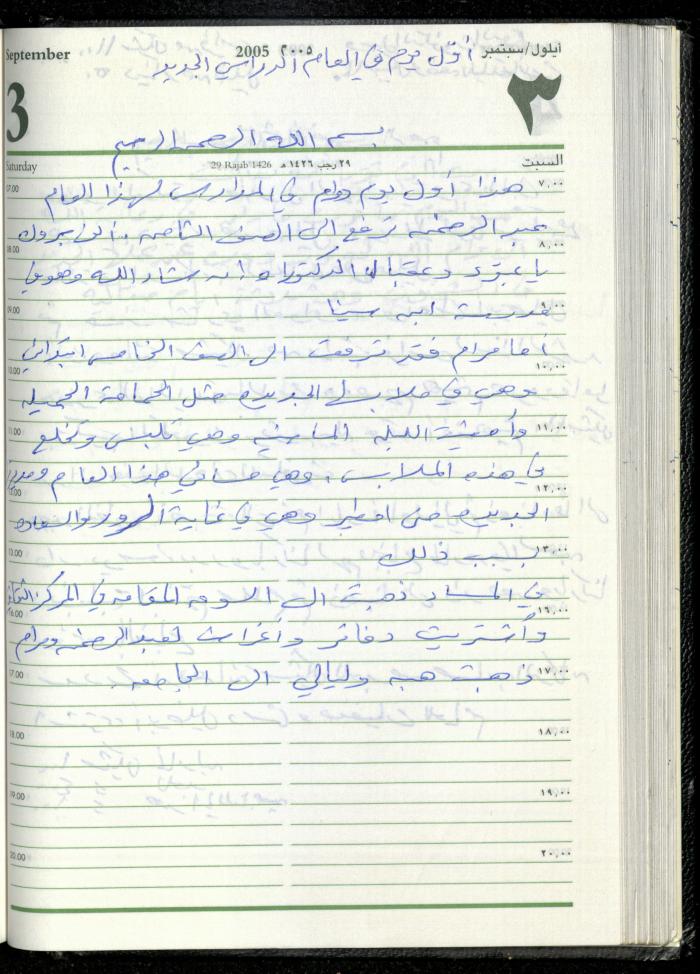 September 2005 ٢٠٠٥ أيلول/سبتمبر
أول يوم في العام الدراسي الجديد
3 ٣
بسم الله الرحمن الرحيم
Saturday 29 Rajab 1426 ٢٩ رجب ١٤٢٦ هـ السبت
07.00 ٧,٠٠
هذا أول يوم دوام في المدارس لهذا العام
عبد الرحمن ترفع الى الصف الثامن، ألف مبروك
08.00 ٨,٠٠
يا عبّود وعقبال الدكتوراه ان شاء الله وهو في
09.00 ٩,٠٠
مدرسة ابن سينا
أما مرام فقد ترفعت الى الصف الخامس ابتدائي
10.00 ١٠,٠٠
وهي في ملابسها الجديدة مثل الحمامة الجميله
11.00 ١١,٠٠
وأمضت الليله الماضيه وهي تلبس وتخلع
في هذه الملابس، وهي هذا العام
12.00 ١٢,٠٠
الجديدة وهي في غاية السرور والسعاده
13.00 ١٣,٠٠
بسبب ذلك
في المساء ذهبت الى السوق المقامه في المركز
16.00 ١٦,٠٠
وأشتريت دفاتر وأغراض لعبد الرحمن ومرام
17.00 ١٧,٠٠
ذهبت هبه وليالي الى الجامعه.
18.00 ١٨,٠٠
19.00 ١٩,٠٠
20.00 ٢٠,٠٠